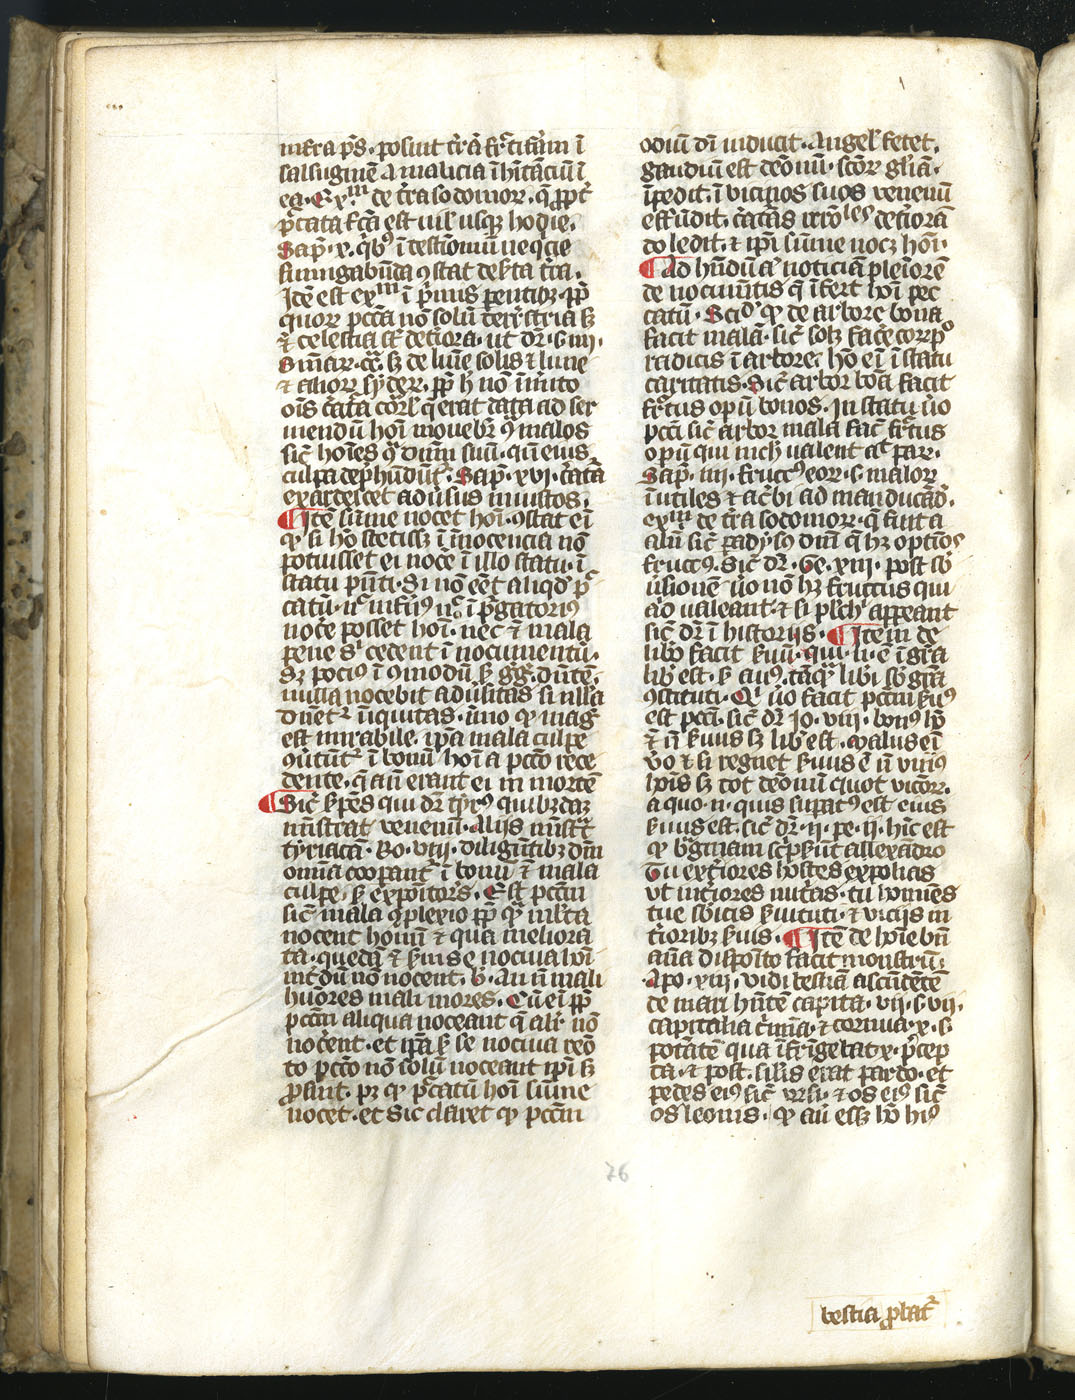 infra p̄s. posuit t̄rā fr̄ctiferam ī
salsuginē a malicia īhītāciū ī
ea. Exᵐ de t̄ra sodomor̄. q̄ ꝓpt̄
pc̄cata fc̄a est usꝫ hodie.
Sap̄. x. qb̄ꝰ ī testīoniū neqͨie
fumigabūda ꝯstat deser̄ta t̄ra.
Idē est exᵐ ī p̄mis parentibꝫ ꝓp̄
quoꝝ pc̄cā nō solū terr̄stria sꝫ
⁊ celestia st̄ det̄iora. ut dr̄. s̄. iiii.
s̄ de lūie solis ⁊ lune
⁊ alioꝝ syderꝝ. ꝓp̄ h̄ nō īmr̄ito
oīs c̄atā q̄ erat data ad ser
uiendū hoī mouebr̄ ꝯ malos
sic̄ hoīes q̄ dn̄m suū. quē eius
culpa Sap̄. xvi. c̄atā
exardescet ad usus iniustos.
¶ Itē sūme nocet hoī. ꝯstat eī
qꝫ si hō stetissꝫ ī īnocencia nō
potuisset ei noc̄e ī illo statu. ī
statu p̄n̄ti. Si nō eēt aliqd̄ pͨ
catū. nͨ infer̄ꝰ nͨ ī p̄gatoriꝰ
noc̄e posset hoī. nec ⁊ mala
pene sͥ cedent ī nocumentū.
sꝫ pociꝰ ī ꝯmodū. dicē.
nulla nocebit aduītas si nlla
dn̄etͬ īiquitas. īmo qꝫ maḡ
est mirabile. ip̄a mala culpe
ī bonū hoī a pc̄cō rece
dente. q̄ aū erant ei in mortē
¶ Sic̄ s̄pēs qui dr̄ tyrꝰ quibꝫdaꝫ
mīstrat venenū. Alijs mīst̄t
tyriacā. Ro. viii. diligētibꝫ dm̄
omnia coopant̄ ī bonū ⁊ mala
culpe. expōitores. Est pc̄cm̄
sic̄ mala ꝯplexio ꝓp̄ quā ml̄ta
nocent homī ⁊ qua meliora
ta. quedā ⁊ s̄ nociua hoī
int̄dū nō nocent. An n̄ mali
hūores mali mores. Cū eī ꝓp̄
pc̄cm̄ aliqua noceant q̄ alr̄ nō
noc̄ent. et ip̄a s̄ se nociua reō
to pc̄cō nō solū noceant ip̄i sꝫ
ꝓsint. pꝫ qꝫ p̄cc̄atū hoī sūme
nocet. et sic claret qꝫ pc̄cm̄
odiū dī inducit. Angelꝰ fetet.
gaudiū est deōnū. glīā.
īpedit. ī vicinos suos venenū
effūdit. c̄at̄as irrōles det̄iorā
do ledit. ⁊ ip̄i sūme nocꝫ hoī.
¶ Ad hn̄dū aͧ noticiā pleīorē
de nocum̄tis q̄ īfert hoī pec
catū. Scīdū qꝫ de arbore bona
facit malā. sic̄ solꝫ fac̄e corrpͦ
radicis ī arbore. hō eī ī statu
caritatis. Sic̄ arbor bōa facit
fr̄ctus opū bonos. In statu uͦo
pc̄ci sic̄ arbor mala fac̄ fr̄ctus
opū qui nich̄ ualent. ac̄ par.
Sap̄. iiii. fructꝰ eoꝝ. s. maloꝝ
īutiles ⁊ ac̄bi ad manducād̄.
exᵐ de t̄ra sodomoꝝ. q̄ fuit a
aliū sic̄ padysꝰ dn̄i q̄ hꝫ optīos
fructꝰ. Sic̄ dr̄. Ge. xiii. post sb̄
ūsionē uͦo nō hꝫ fructus qui
aͥo ualeant. ⁊ si pulcͥ appeant
sic̄ dr̄ ī historijs. ¶ Item de
lib̄o facit s̄uū. qui. li. ē ī gr̄a
lib̄ est. s̄ aiꝰ. tāqͣ libi sb̄ gr̄a
ꝯstituti. Qͥ uͦo facit pc̄cm̄ s̄uꝰ
est pc̄ci. sic̄ dr̄ Io. viii. bonꝰ hō
⁊ si s̄uus sꝫ lib̄ est. malus eī
uͦo ⁊ si regnet s̄uus ē n̄ vniꝰ
hoīs sꝫ tot deōnū quot vicioꝝ.
a quo. n̄. quis supatꝰ est eius
s̄uus est. sic̄ dr̄. ii. pe. ii. hīc est
qꝫ scp̄serūt allexādro
Tu ext̄iores hostes expolias
vt int̄iores nut̄as. tu homīes
tue sb̄icis s̄uituti. ⁊ vicijs in
t̄ioribꝫ s̄uis. ¶ Itē de hoīe bn̄
aīa dispoīto facit monstrū.
Apo. xiii. vidi bestiā ascēdētē
de mari hn̄tē capita. vii. s. vii.
capitalia c̄mīa. ⁊ cornua. x. s.
potātē qua īfrīgebat x. p̄cep
ta. ⁊ post. silis erat pardo. et
pedes eiꝰ sic̄ vrsi. ⁊ os eiꝰ sic̄
os leonis. qꝫ aū essꝫ hō hiꝰ
76
bestia ꝓbat̄